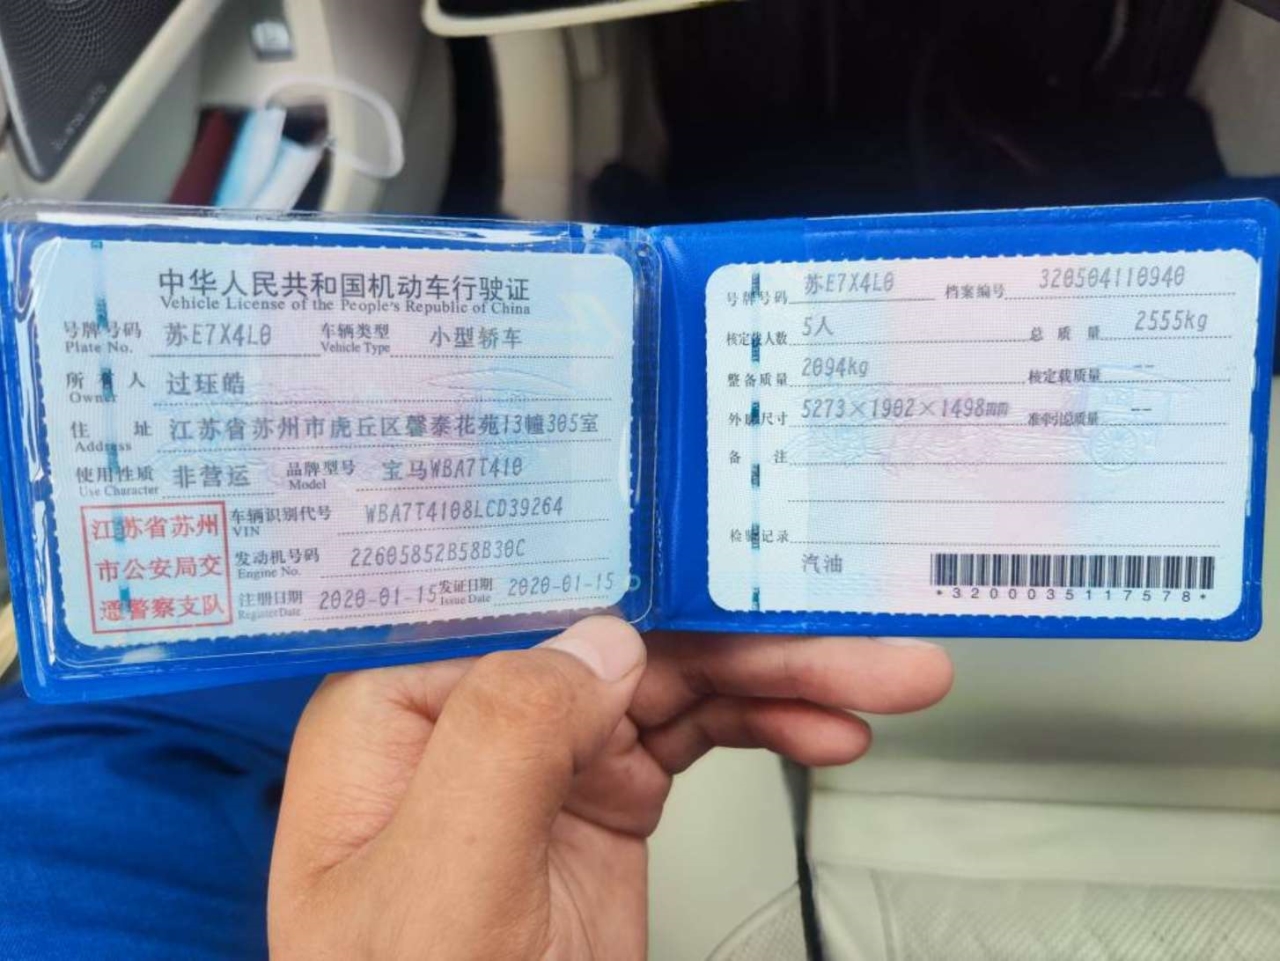 中华人民共和国机动车行驶证
Vehicle License of the People's Republic of China
号牌号码 苏E7X4L0 车辆类型 小型轿车
Plate No. Vehicle Type
所有人 过珏皓
Owner
住址 江苏省苏州市虎丘区馨泰花苑13幢305室
Address
使用性质 非营运 品牌型号 宝马WBA7T410
Use Character Model
江苏省苏州
市公安局交
通警察支队
车辆识别代号 WBA7T4108LCD39264
VIN
发动机号码 22605852B58B30C
Engine No.
注册日期 2020-01-15 发证日期 2020-01-15
Register Date Issue Date
号牌号码 苏E7X4L0 档案编号 320504110940
核定载人数 5人 总质量 2555kg
整备质量 2094kg 核定载质量 --
外廓尺寸 5273×1902×1498mm 准牵引总质量 --
备注
检验记录
汽油
*3200035117578*